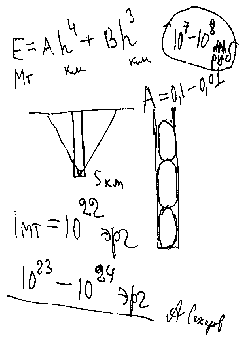 E = Ah⁴ + Bh³
Мт км км
10⁷ - 10⁸
руб
A = 0,1 - 0,01
5 км
1 мт = 10²² эрг
10²³ - 10²⁴ эрг
А Сахаров